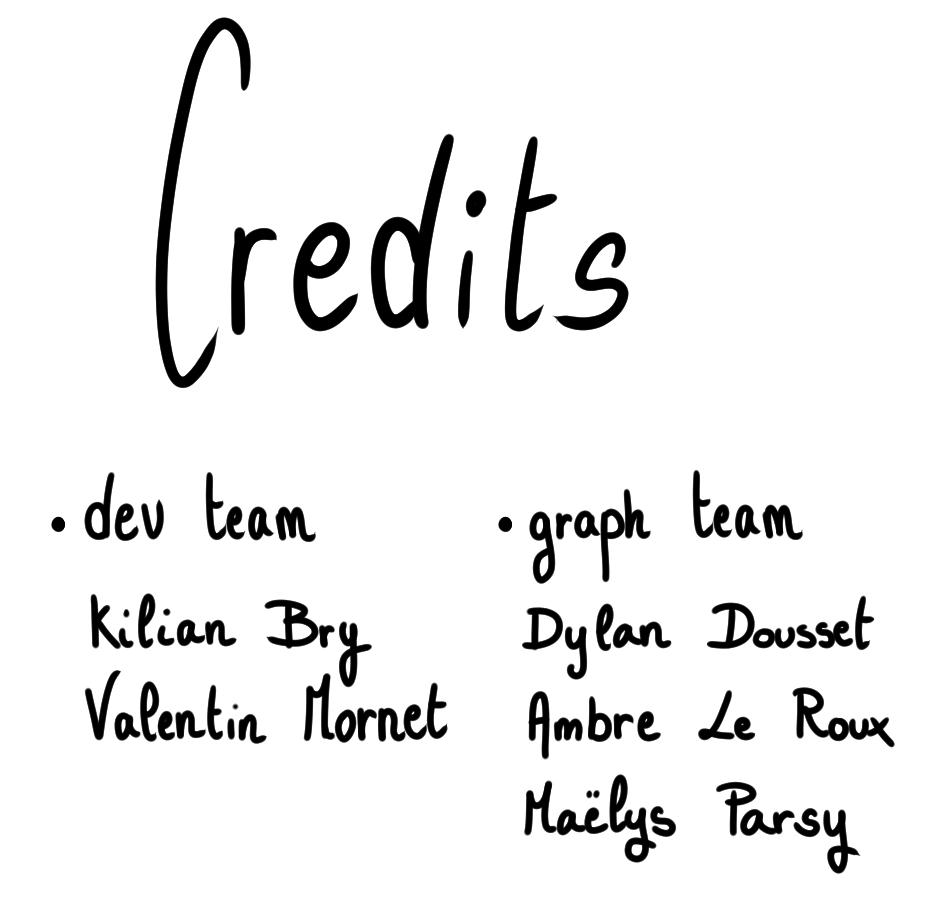 Credits
• dev team
Kilian Bry
Valentin Mornet
• graph team
Dylan Dousset
Ambre Le Roux
Maëlys Parsy